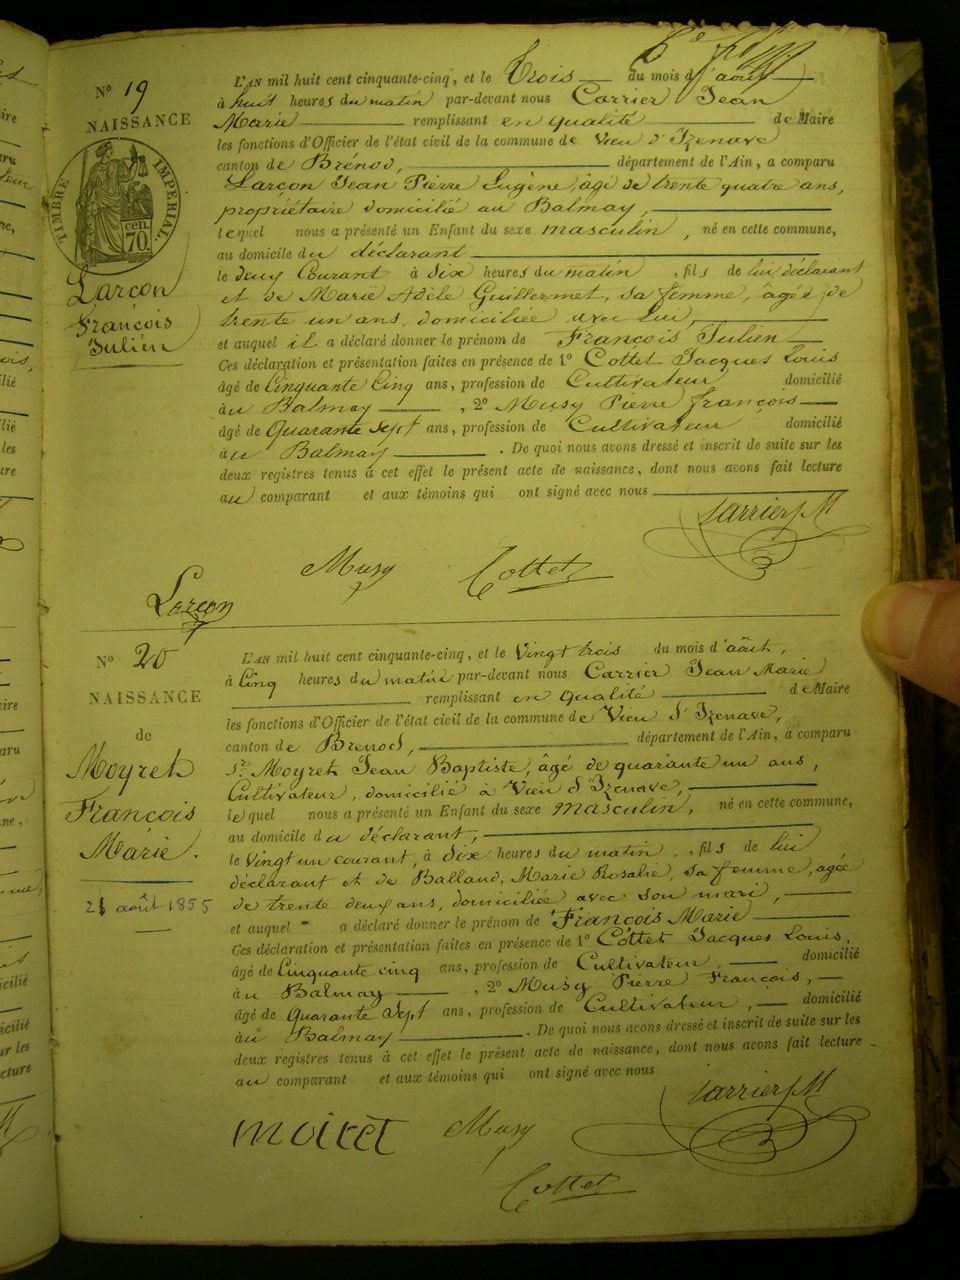 N° 19
NAISSANCE
TIMBRE IMPERIAL.
cen.
70.
Larçon
François
Julien
L'AN mil huit cent cinquante-cinq, et le Trois du mois d'août
à huit heures du matin par-devant nous Carrier Jean
Marie remplissant en qualité de Maire
les fonctions d'Officier de l'état civil de la commune de Vieu d'Izenave
canton de Brénod, département de l'Ain, a comparu
Larçon Jean Pierre Eugène, âgé de trente quatre ans,
propriétaire domicilié au Balmay,
lequel nous a présenté un Enfant du sexe masculin, né en cette commune,
au domicile du déclarant
le deux Courant à dix heures du matin, fils de lui déclarant
et de Marie Adèle Guillermet, sa femme, âgée de
trente un ans, domiciliée avec lui,
et auquel il a déclaré donner le prénom de François Julien
Ces déclaration et présentation faites en présence de 1° Cottet Jacques Louis
âgé de Cinquante Cinq ans, profession de Cultivateur domicilié
au Balmay, 2° Musy Pierre françois
âgé de Quarante Sept ans, profession de Cultivateur domicilié
àu Balmay. De quoi nous avons dressé et inscrit de suite sur les
deux registres tenus à cet effet le présent acte de naissance, dont nous avons fait lecture
au comparant et aux témoins qui ont signé avec nous
Carrier J M
Musy Cottet
Larçon
N° 20
NAISSANCE
de
Moyret
François
Marie.
21 août 1855
L'AN mil huit cent cinquante-cinq, et le Vingt trois du mois d'août,
à Cinq heures du matin par-devant nous Carrier Jean Marie
remplissant en qualité de Maire
les fonctions d'Officier de l'état civil de la commune de Vieu d'Izenave,
canton de Brenod, département de l'Ain, a comparu
Sr. Moyret Jean Baptiste, âgé de quarante un ans,
Cultivateur, domicilié à Vieu d'Izenave,
lequel nous a présenté un Enfant du sexe masculin, né en cette commune,
au domicile du déclarant,
le vingt un courant, à dix heures du matin, fils de lui
déclarant et de Balland, Marie Rosalie, sa femme, agée
de trente deux ans, domiciliée avec son mari,
et auquel a déclaré donner le prénom de François Marie
Ces déclaration et présentation faites en présence de 1° Cottet Jacques Louis,
âgé de Cinquante cinq ans, profession de Cultivateur, domicilié
àu Balmay, 2° Musy Pierre François,
âgé de Quarante Sept ans, profession de Cultivateur, domicilié
àu Balmay. De quoi nous avons dressé et inscrit de suite sur les
deux registres tenus à cet effet le présent acte de naissance, dont nous avons fait lecture
au comparant et aux témoins qui ont signé avec nous
Carrier J M
moiret Musy
Cottet